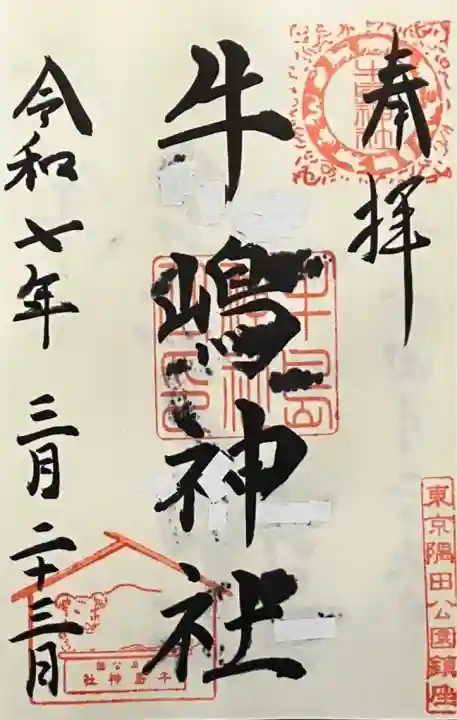 奉拝
牛嶋神社
東京隅田公園鎮座
令和七年 三月二十三日